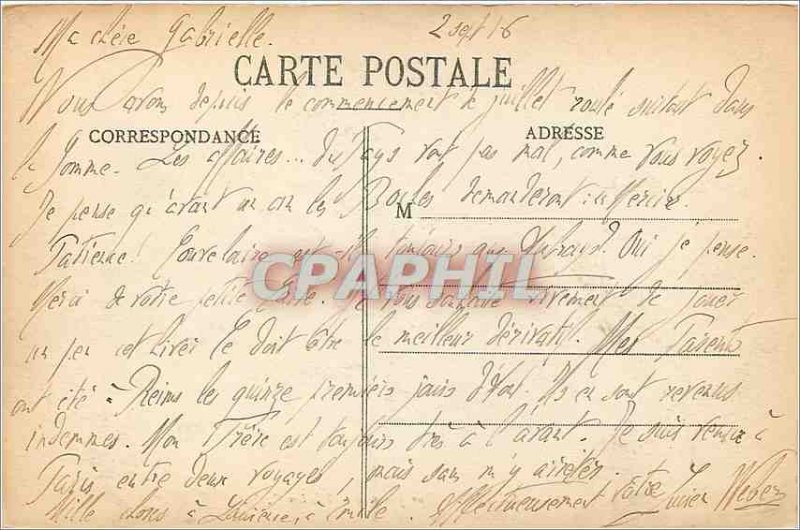 Ma chère Gabrielle. 2 sept 16
CARTE POSTALE
Nous avons depuis le commencement de juillet roulé surtout dans
CORRESPONDANCE ADRESSE
la Somme. Les affaires... du Pays vont pas mal, comme vous voyez.
Je pense qu'avant un an les Boches demanderont : « Merci ».
M
Patience! est-il toujours aux ? Oui je pense.
CPAPHIL
Merci de votre petite carte. Je vous souhaite vivement de jouer
un peu cet hiver. Ce doit être le meilleur dérivatif. Mes Parents
ont été à Reims les quinze premiers jours d'Août. Ils en sont revenus
indemnes. Mon Frère est toujours très à l'avant. Je suis venu à
Paris entre deux voyages, mais sans m'y arrêter.
Mille choses à à Émile. Affectueusement votre vieux Weber